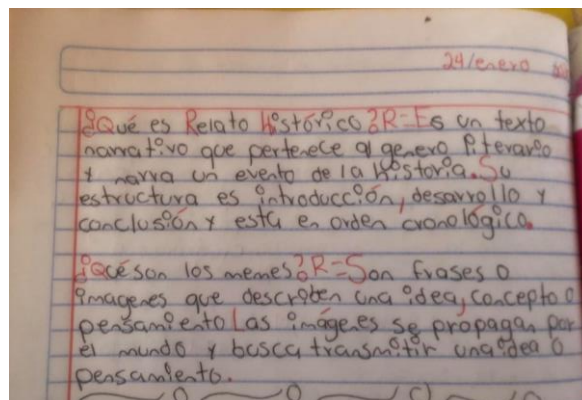 24/enero
¿Qué es Relato histórico?R=Es un texto
narrativo que pertenece al genero literario
y narra un evento de la historia. Su
estructura es introducción, desarrollo y
conclusión y está en orden cronológico.
¿Qué son los memes?R=Son frases o
imagenes que describen una idea, concepto o
pensamiento Las imágenes se propagan por
el mundo y busca transmitir una idea o
pensamiento.